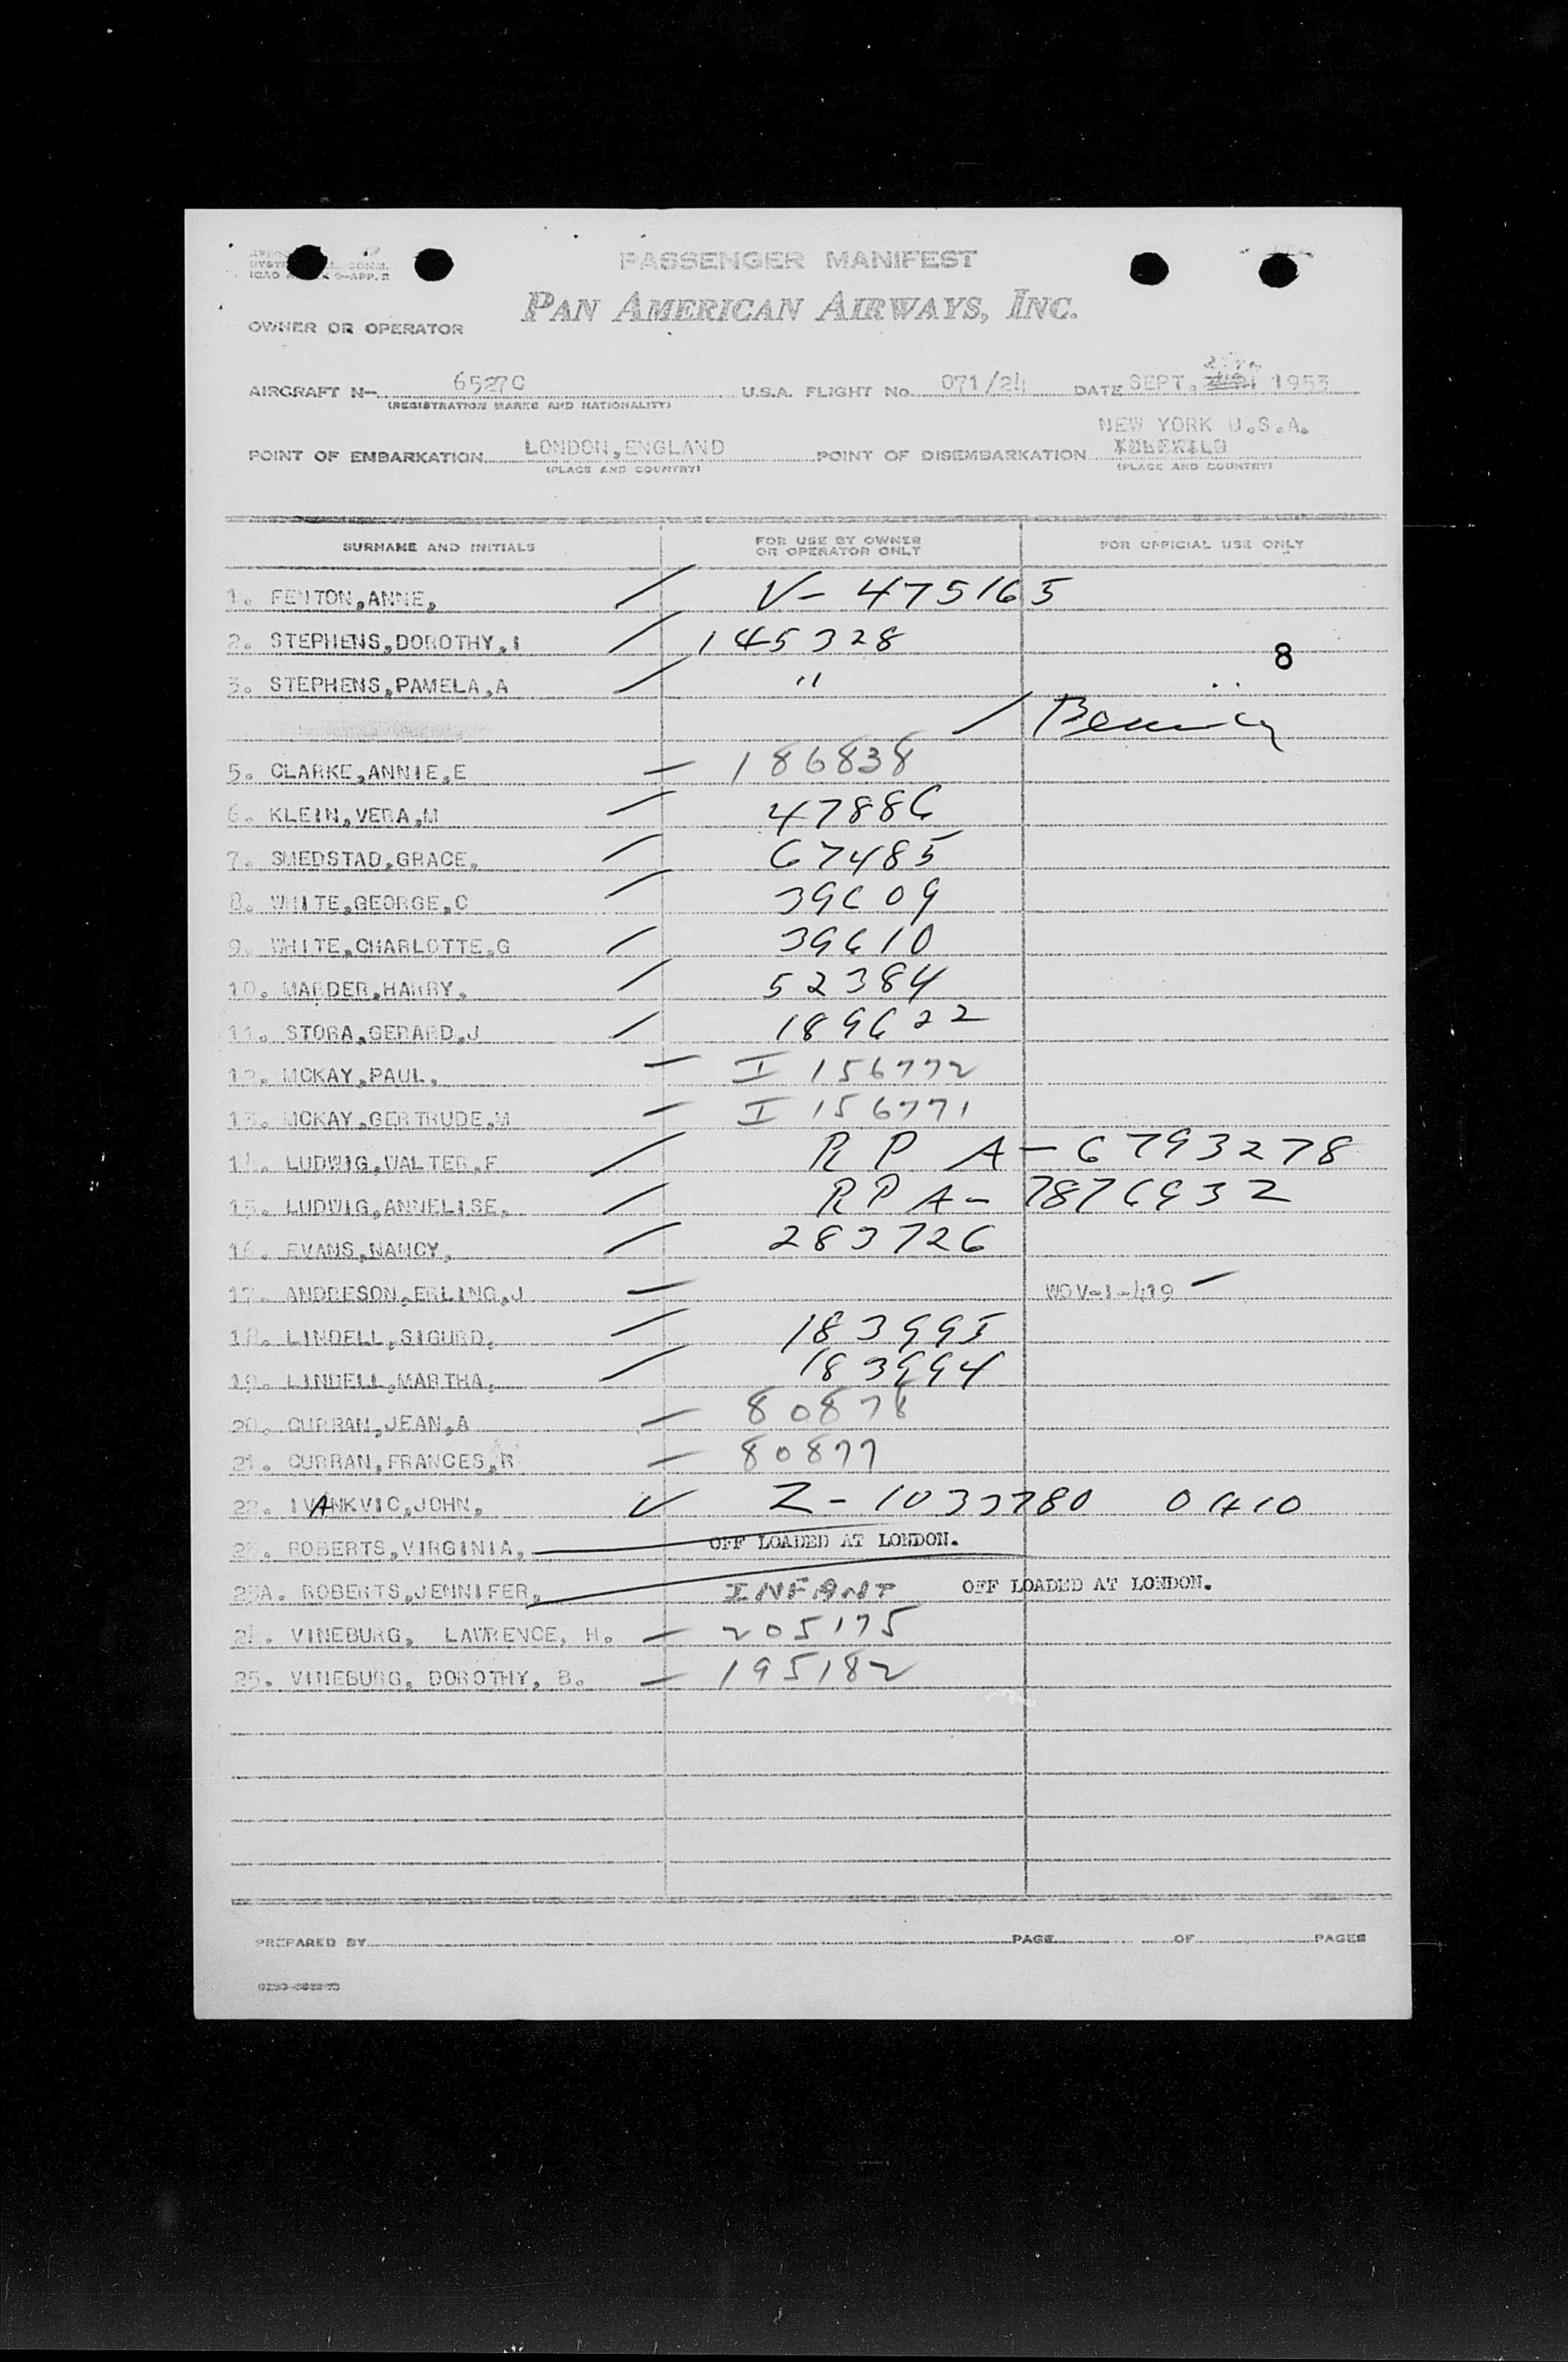 PASSENGER MANIFEST
PAN AMERICAN AIRWAYS, INC.
OWNER OR OPERATOR
AIRCRAFT N— 6527C U.S.A. FLIGHT No. 071/24 DATE SEPT. 1953
(REGISTRATION MARKS AND NATIONALITY)
NEW YORK U.S.A.
POINT OF EMBARKATION LONDON, ENGLAND POINT OF DISEMBARKATION IDLEWILD
(PLACE AND COUNTRY) (PLACE AND COUNTRY)
SURNAME AND INITIALS FOR USE BY OWNER OR OPERATOR ONLY FOR OFFICIAL USE ONLY
1. FENTON,ANNE, / V- 475165
2. STEPHENS,DOROTHY,I / 145328
8
3. STEPHENS,PAMELA,A / "
/
5. CLARKE,ANNIE,E — 186838
6. KLEIN,VERA,M / 47886
7. SMEDSTAD,GRACE, / 67485
8. WHITE,GEORGE,C / 39609
9. WHITE,CHARLOTTE,G / 39610
10. MARDER,HARRY, / 52384
11. STORA,GERARD,J / 189622
12. MCKAY,PAUL, — I 156772
13. MCKAY,GERTRUDE,M — I 156771
14. LUDWIG,WALTER,F / R P A-6793278
15. LUDWIG,ANNELISE, / RPA- 7876932
16. EVANS,NANCY, / 283726
17. ANDRESON,ERLING,J — WOV-1-419 —
18. LINDELL,SIGURD, / 183995
19. LINDELL,MARTHA, / 183994
20. CURRAN,JEAN,A — 80878
21. CURRAN,FRANCES,R — 80877
22. IVANKVIC,JOHN, V Z- 1033780 0410
23. ROBERTS,VIRGINIA, OFF LOADED AT LONDON.
23A. ROBERTS,JENNIFER, INFANT OFF LOADED AT LONDON.
24. VINEBURG, LAWRENCE, H. — 205175
25. VINEBURG, DOROTHY, B. — 195182
PREPARED BY PAGE OF PAGES